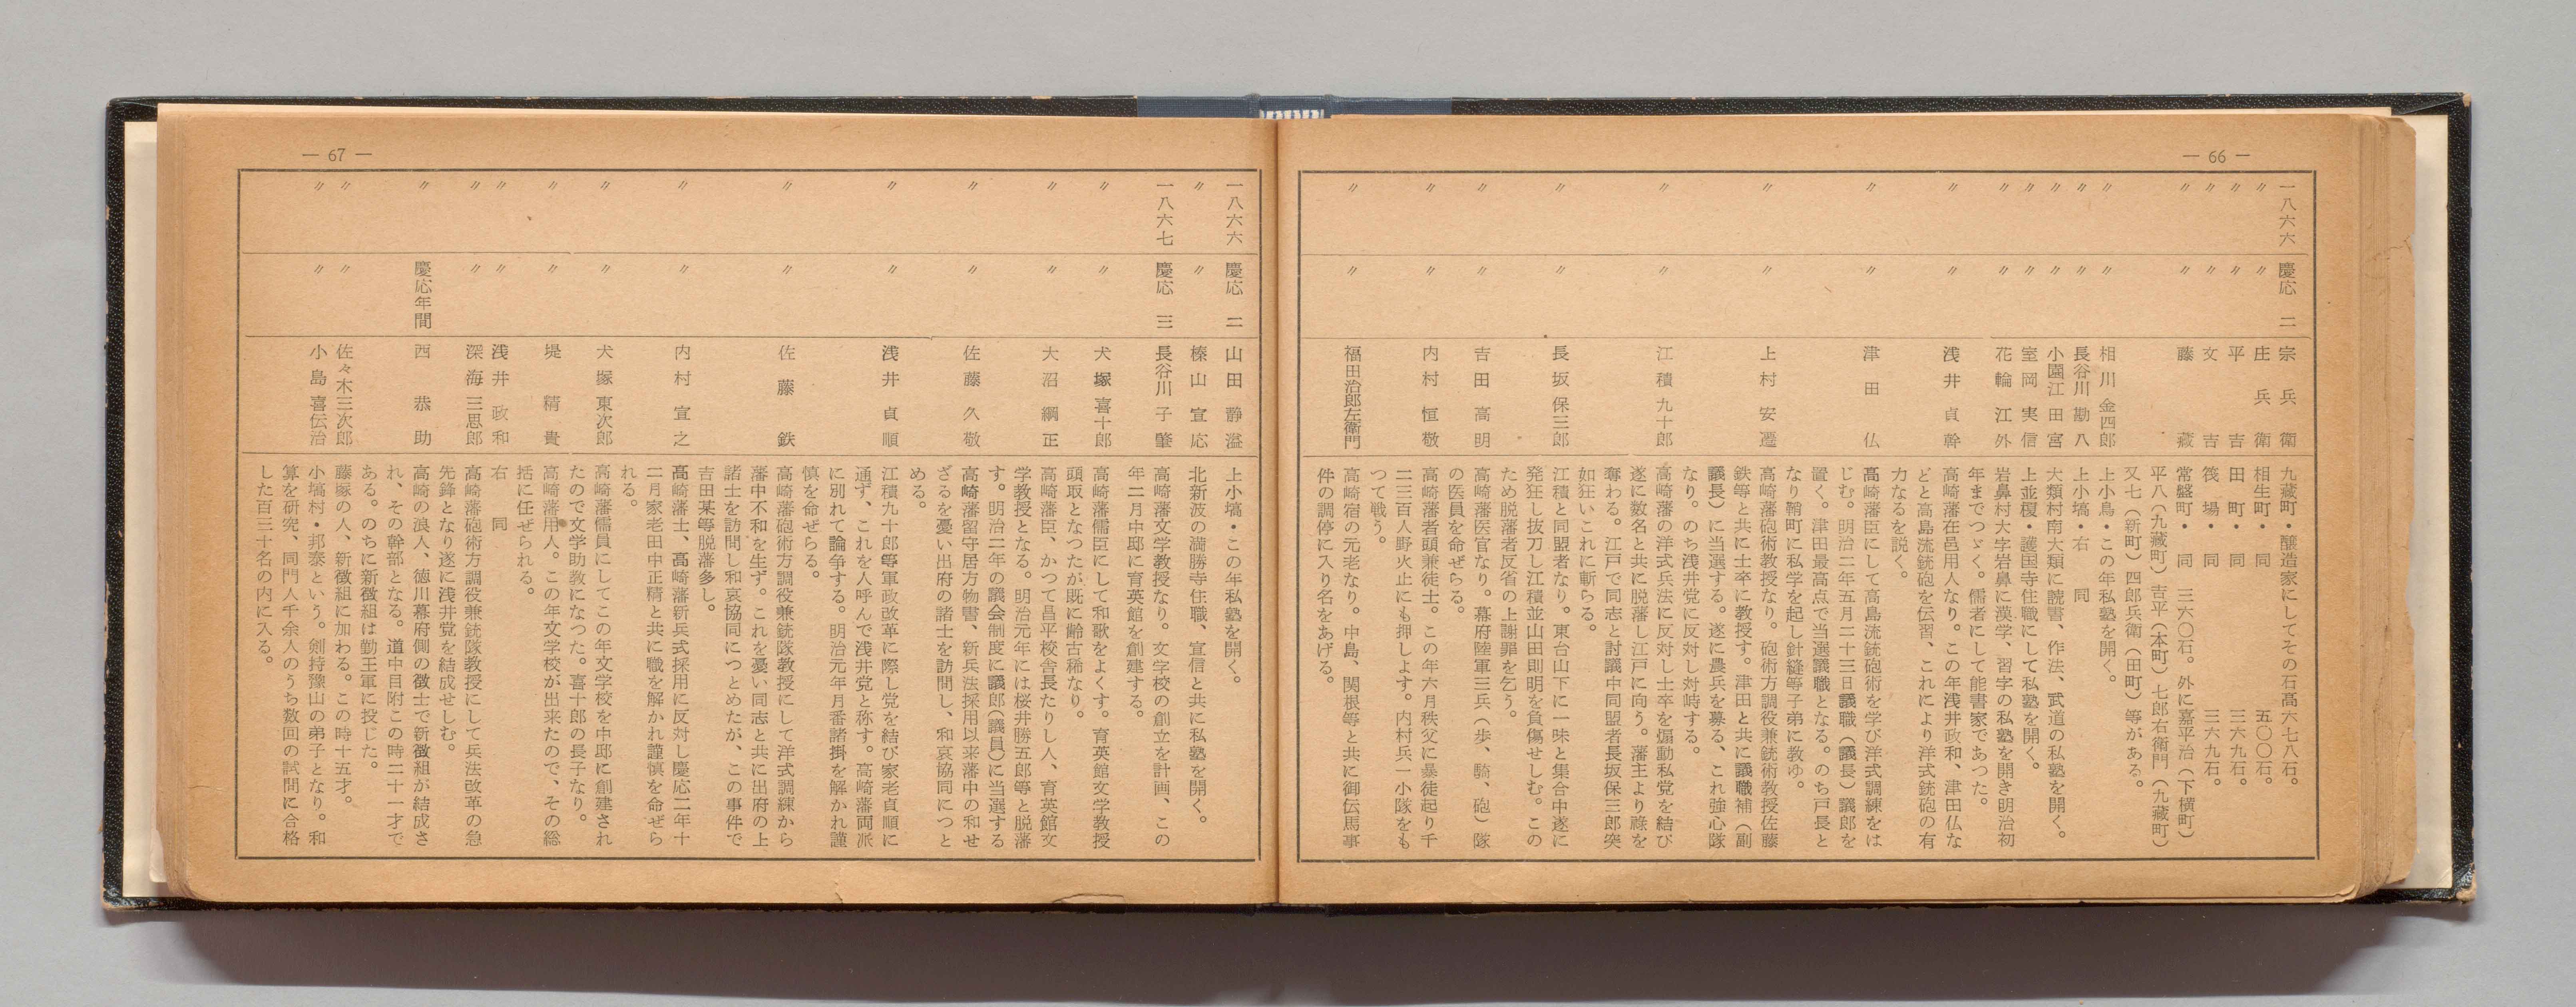 — 66 —
一八六六 慶応 二 宗 兵 衛 九蔵町・醸造家にしてその石高六七八石。
〃 〃 庄 兵 衛 相生町・ 同 五〇〇石。
〃 〃 平 吉 田 町・ 同 三六九石。
〃 〃 文 吉 筏 場・ 同 三六九石。
〃 〃 藤 蔵 常盤町・ 同 三六〇石。外に嘉平治（下横町）
平八（九蔵町）吉平（本町）七郎右衛門（九蔵町）
又七（新町）四郎兵衛（田町）等がある。
〃 〃 相川 金四郎 上小鳥・この年私塾を開く。
〃 〃 長谷川 勘八 上小塙・右 同
〃 〃 小園江 田宮 大類村南大類に読書、作法、武道の私塾を開く。
〃 〃 室岡 実信 上並榎・護国寺住職にして私塾を開く。
〃 〃 花輪 江外 岩鼻村大字岩鼻に漢学、習字の私塾を開き明治初
年までつゞく。儒者にして能書家であつた。
〃 〃 浅井 貞幹 高崎藩在邑用人なり。この年浅井政和、津田仏な
どと高島流銃砲を伝習、これにより洋式銃砲の有
力なるを説く。
〃 〃 津田 仏 高崎藩臣にして高島流銃砲術を学び洋式調練をは
じむ。明治二年五月二十三日議職（議長）議郎を
置く。津田最高点で当選議職となる。のち戸長と
なり鞘町に私学を起し針縫等子弟に教ゆ。
〃 〃 上村 安遷 高崎藩砲術教授なり。砲術方調役兼銃術教授佐藤
鉄等と共に士卒に教授す。津田と共に議職補（副
議長）に当選する。遂に農兵を募る、これ強心隊
なり。のち浅井党に反対し対峙する。
〃 〃 江積 九十郎 高崎藩の洋式兵法に反対し士卒を煽動私党を結び
遂に数名と共に脱藩し江戸に向う。藩主より祿を
奪わる。江戸で同志と討議中同盟者長坂保三郎突
如狂いこれに斬らる。
〃 〃 長坂 保三郎 江積と同盟者なり。東台山下に一味と集合中遂に
発狂し抜刀し江積並山田則明を負傷せしむ。この
ため脱藩者反省の上謝罪を乞う。
〃 〃 吉田 高明 高崎藩医官なり。幕府陸軍三兵（歩、騎、砲）隊
の医員を命ぜらる。
〃 〃 内村 恒敬 高崎藩者頭兼徒士。この年六月秩父に暴徒起り千
二三百人野火止にも押しよす。内村兵一小隊をも
つて戦う。
〃 〃 福田治郎左衛門 高崎宿の元老なり。中島、関根等と共に御伝馬事
件の調停に入り名をあげる。
— 67 —
一八六六 慶応 二 山田 静溢 上小塙・この年私塾を開く。
〃 〃 榛山 宣応 北新波の満勝寺住職、宣信と共に私塾を開く。
一八六七 慶応 三 長谷川 子肇 高崎藩文学教授なり。文学校の創立を計画、この
年二月中邸に育英館を創建する。
〃 〃 犬塚 喜十郎 高崎藩儒臣にして和歌をよくす。育英館文学教授
頭取となつたが既に齢古稀なり。
〃 〃 大沼 綱正 高崎藩臣、かつて昌平校舎長たりし人、育英館文
学教授となる。明治元年には桜井勝五郎等と脱藩
す。明治二年の議会制度に議郎（議員）に当選する
〃 〃 佐藤 久敬 高崎藩留守居方物書、新兵法採用以来藩中の和せ
ざるを憂い出府の諸士を訪問し、和哀協同につと
める。
〃 〃 浅井 貞順 江積九十郎等軍政改革に際し党を結び家老貞順に
通ず、これを人呼んで浅井党と称す。高崎藩両派
に別れて論争する。明治元年月番諸掛を解かれ謹
慎を命ぜらる。
〃 〃 佐藤 鉄 高崎藩砲術方調役兼銃隊教授にして洋式調練から
藩中不和を生ず。これを憂い同志と共に出府の上
諸士を訪問し和哀協同につとめたが、この事件で
吉田某等脱藩多し。
〃 〃 内村 宣之 高崎藩士、高崎藩新兵式採用に反対し慶応二年十
二月家老田中正精と共に職を解かれ謹慎を命ぜら
れる。
〃 〃 犬塚 東次郎 高崎藩儒員にしてこの年文学校を中邸に創建され
たので文学助教になつた。喜十郎の長子なり。
〃 〃 堤 精貴 高崎藩用人。この年文学校が出来たので、その総
括に任ぜられる。
〃 〃 浅井 政和 右 同
〃 〃 深海 三思郎 高崎藩砲術方調役兼銃隊教授にして兵法改革の急
先鋒となり遂に浅井党を結成せしむ。
〃 慶応年間 西 恭助 高崎の浪人、徳川幕府側の徴士で新徴組が結成さ
れ、その幹部となる。道中目附この時二十一才で
ある。のちに新徴組は勤王軍に投じた。
〃 〃 佐々木三次郎 藤塚の人、新徴組に加わる。この時十五才。
〃 〃 小島 喜伝治 小塙村・邦泰という。剣持豫山の弟子となり。和
算を研究、同門人千余人のうち数回の試問に合格
した百三十名の内に入る。